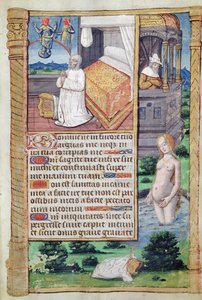 Domine ne in furore tuo
arguas me neq in
ira tua corripias me
sagitte tue infixe sut
michi et confirmasti super
me manum tuam
Non est sanitas in carne
mea a facie non est pax
ossibus meis a facie pecca
rum meorum
iniquitates mee su
pergresse sunt caput meum
sicut onus grave gravate